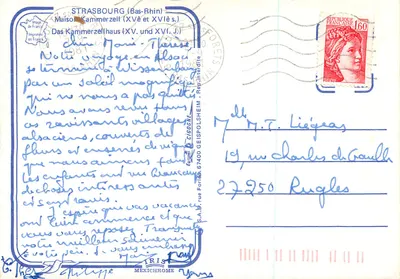 STRASBOURG (Bas-Rhin)
Maison Kammerzell (XVe et XVIe s.)
Das Kammerzellhaus (XV. und XVI. J.)
Chère Marie-Thérèse,
Notre voyage en Alsace
se termine à Wissembourg
par un soleil magnifique
qui ne nous a pas quittés.
Nous avons revu tous
ces ravissants villages
alsaciens, couverts de
fleurs et enserrés de vignes
que nous aimons tant.
Les enfants ont vu beaucoup
de choses intéressantes
et sont ravis.
J'espère que vos vacances
ont bien commencé et que
vous vous reposez.
votre meilleur souvenir
Philippe
Yves
MEXICHROME
IRIS
67400 GEISPOLSHEIM - Rep. interdite
REPUBLIQUE FRANCAISE
1,60
POSTES
Mlle M.T. Liégeas
19, rue Charles de Gaulle
27250 Rugles